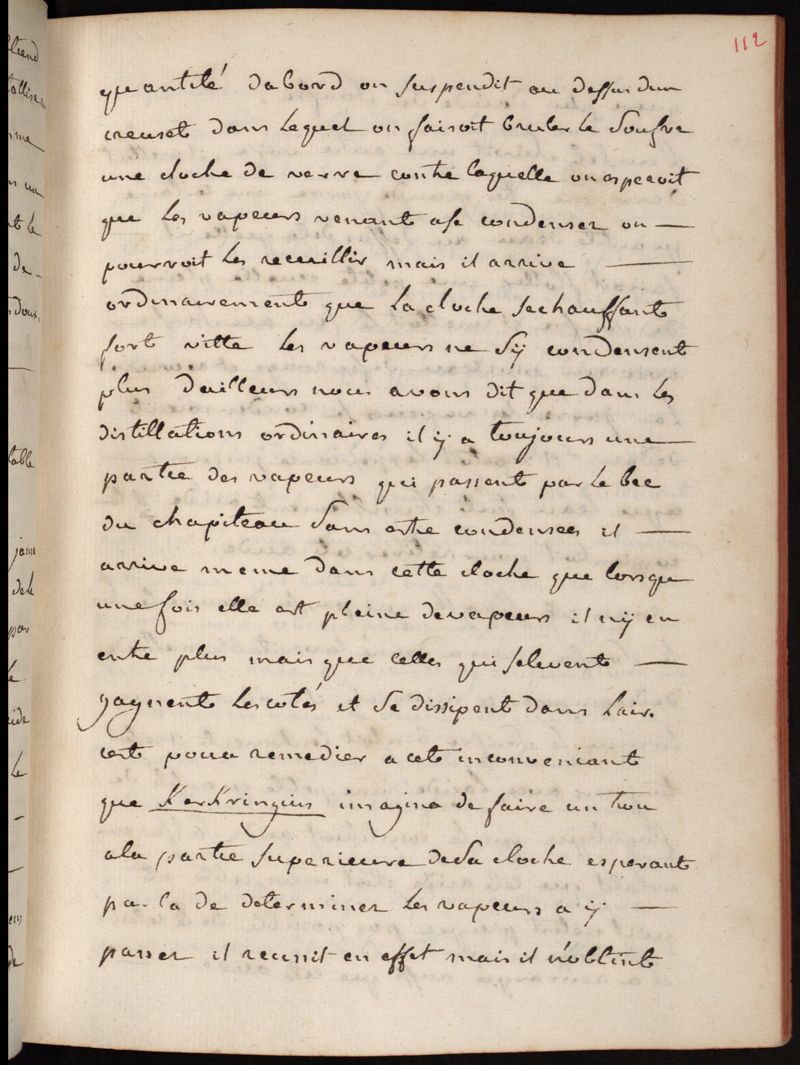 112
quantité dabord on suspendit au dessus dun
creuset dans lequel on faisoit bruler le Soufre
une cloche de verre contre laquelle on esperoit
que les vapeurs venant a se condenser on —
pourroit les recueillir mais il arrive —
ordinairement que la cloche sechauffant
fort vitte les vapeurs ne sÿ condensent
plus dailleurs nous avons dit que dans les
distillations ordinaires il ÿ a toujours une —
partie des vapeurs qui passent par le bec
du chapiteau sans estre condensées il —
arrive meme dans cette cloche que lorsque
une fois elle est pleine de vapeurs il nÿ en
entre plus mais que celles qui selevent —
gagnent les cotés et se dissipent dans lair.
cest pour remedier a cet inconveniant
que KerKringius imagina de faire un trou
a la partie superieure de sa cloche esperant
par la de determiner les vapeurs a ÿ —
passer il reussit en effet mais il n'obtint